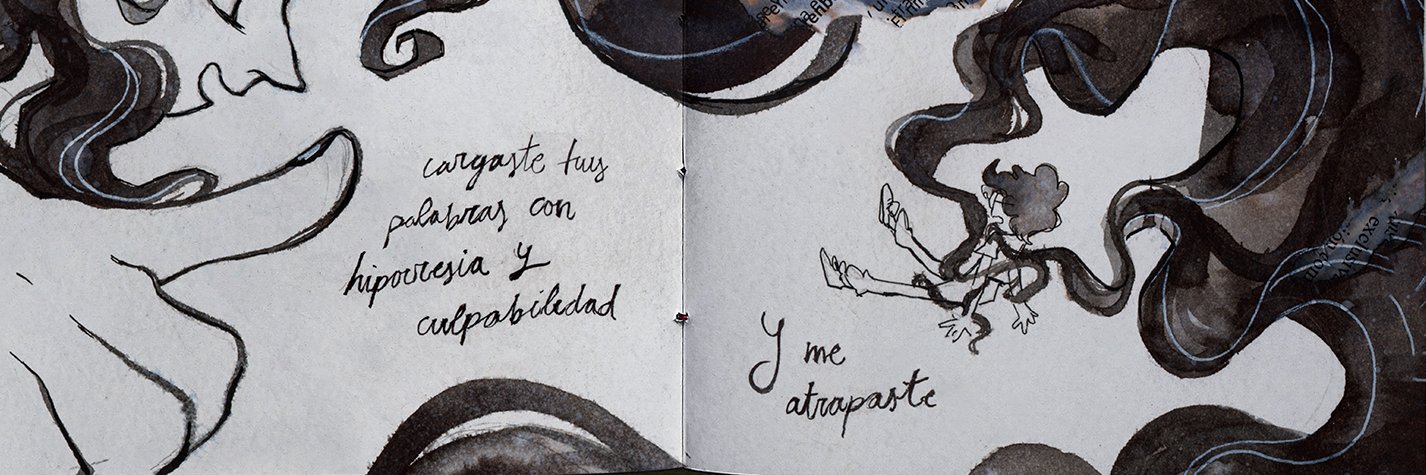 cargaste tus
palabras con
hipocresia y
culpabilidad
Y me
atrapaste